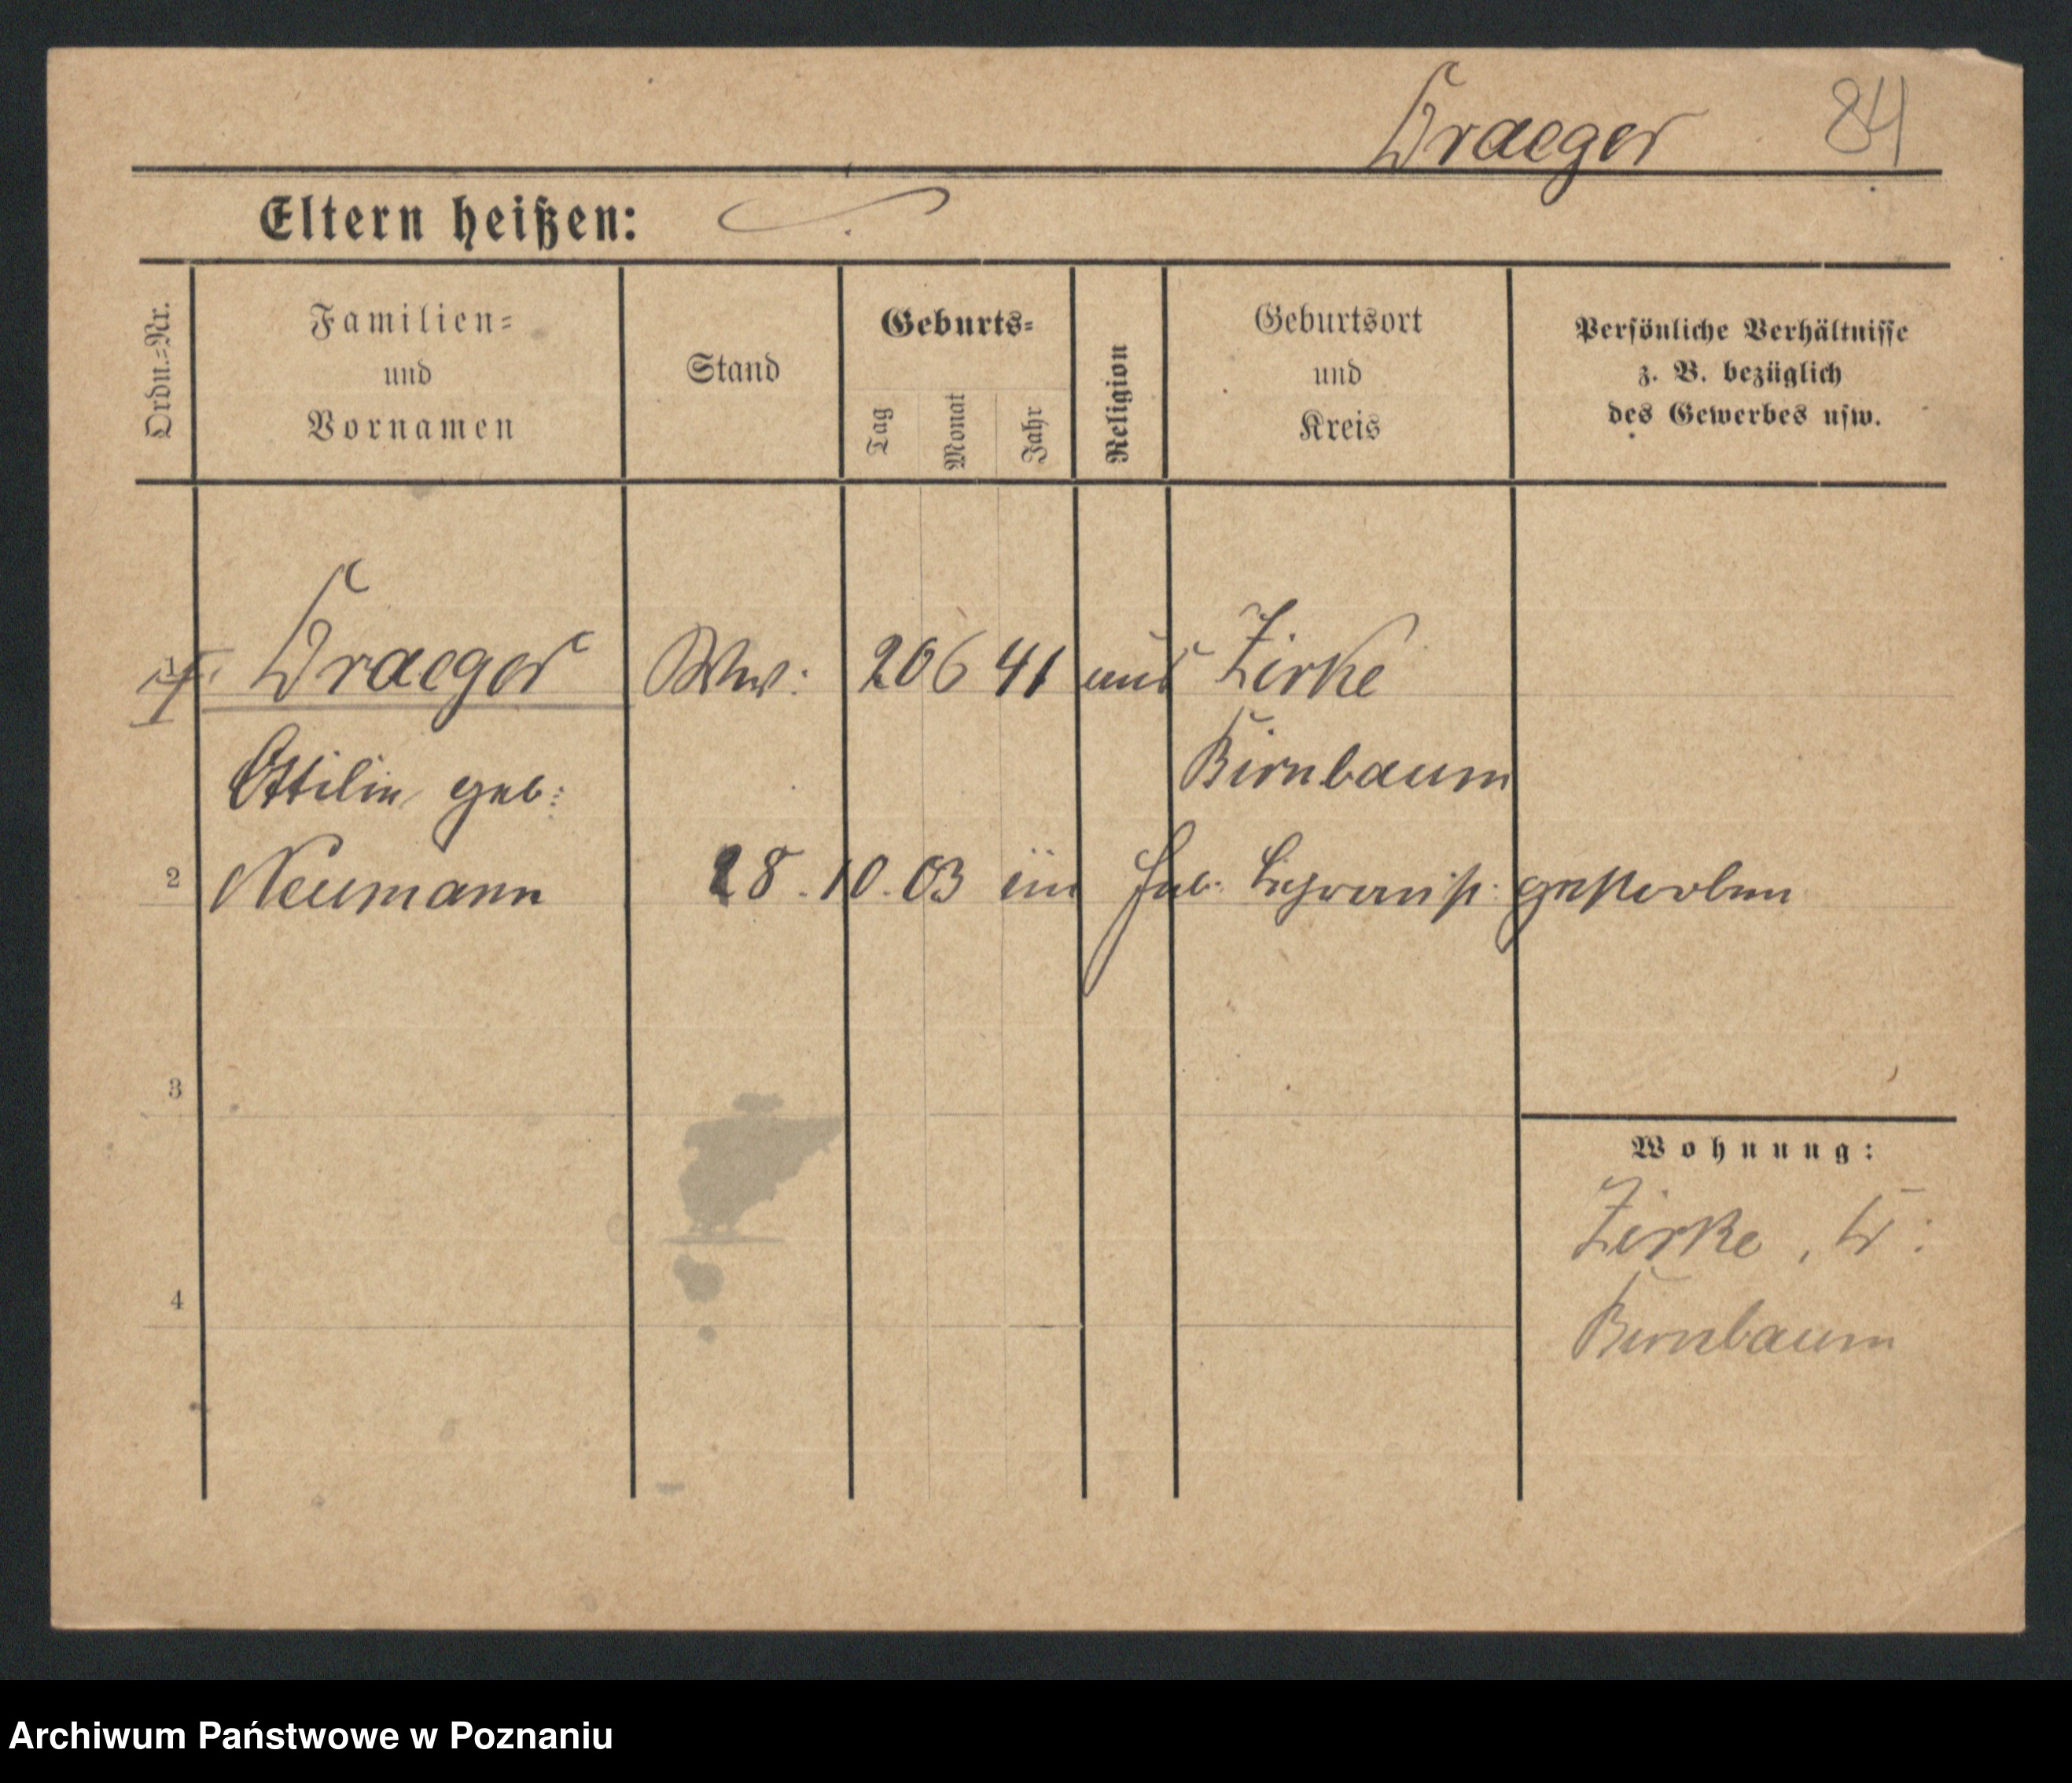 Draeger 84
Eltern heißen:
Ordn.=Nr.
Familien=
und
Vornamen
Stand
Geburts=
Tag
Monat
Jahr
Religion
Geburtsort
und
Kreis
Persönliche Verhältnisse
z. B. bezüglich
des Gewerbes usw.
Draeger Ww: 20 6 41 Zirke
Ottilie geb: Birnbaum
2 Neumann 28.10.03 im gestorben
3
Wohnung:
Zirke, Kr:
4
Birnbaum
Archiwum Państwowe w Poznaniu